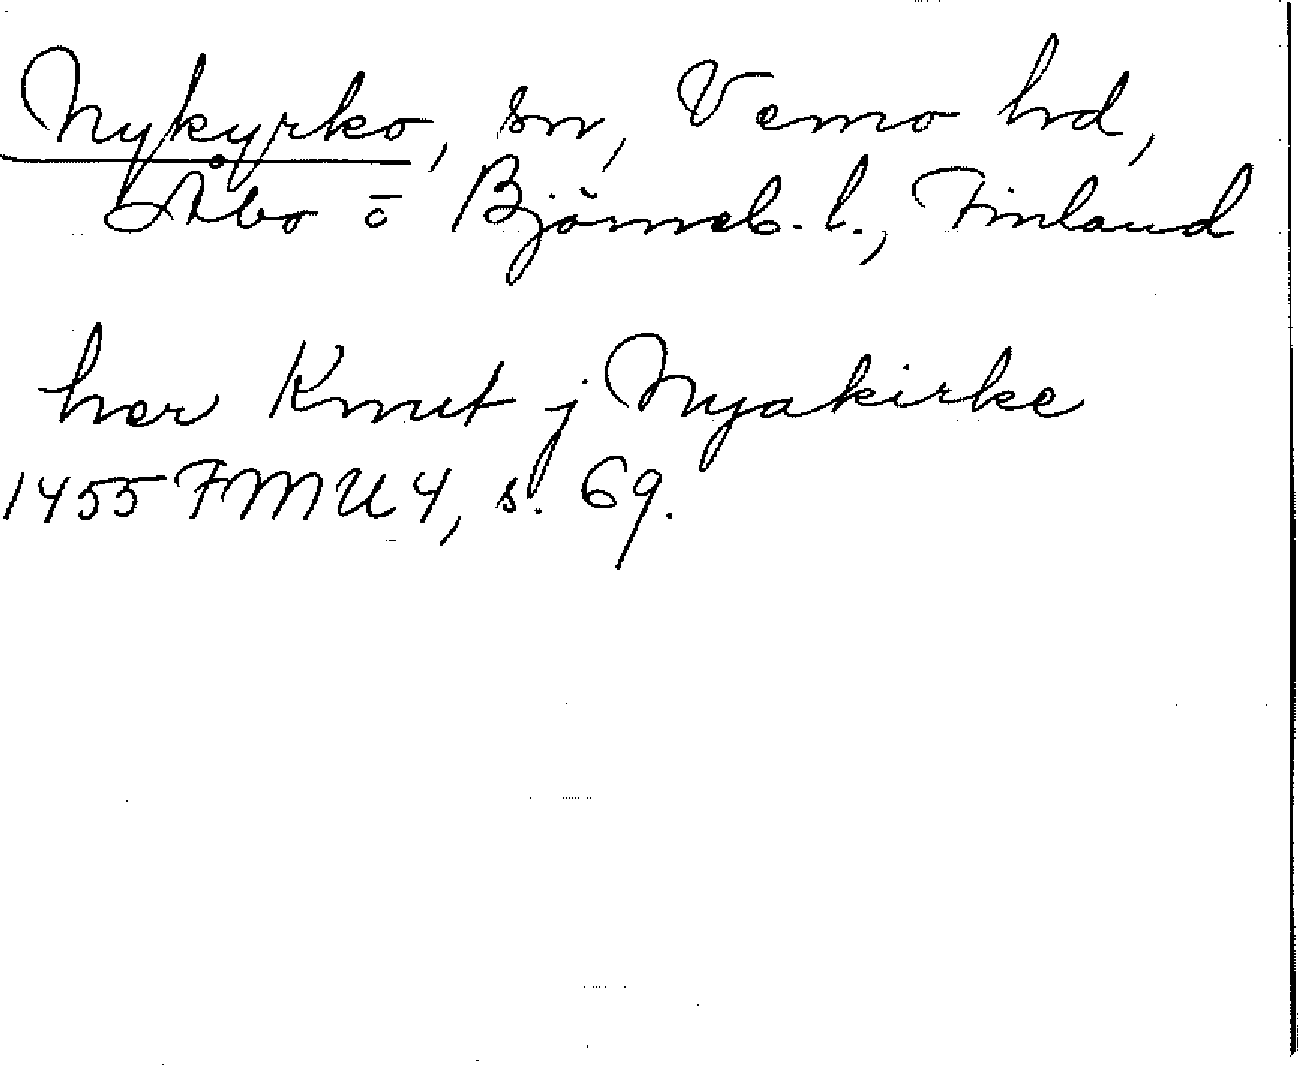 Nykyrko, sn, Vemo hd,
Åbo o Björneb. l., Finland
her Knut j Nyakirke
1455 FMU 4, s. 69.